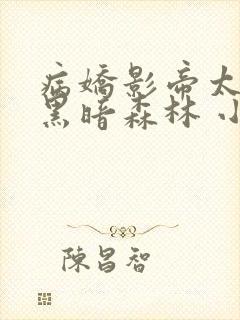 病嬌影帝太
黑暗森林 小
陳昌智